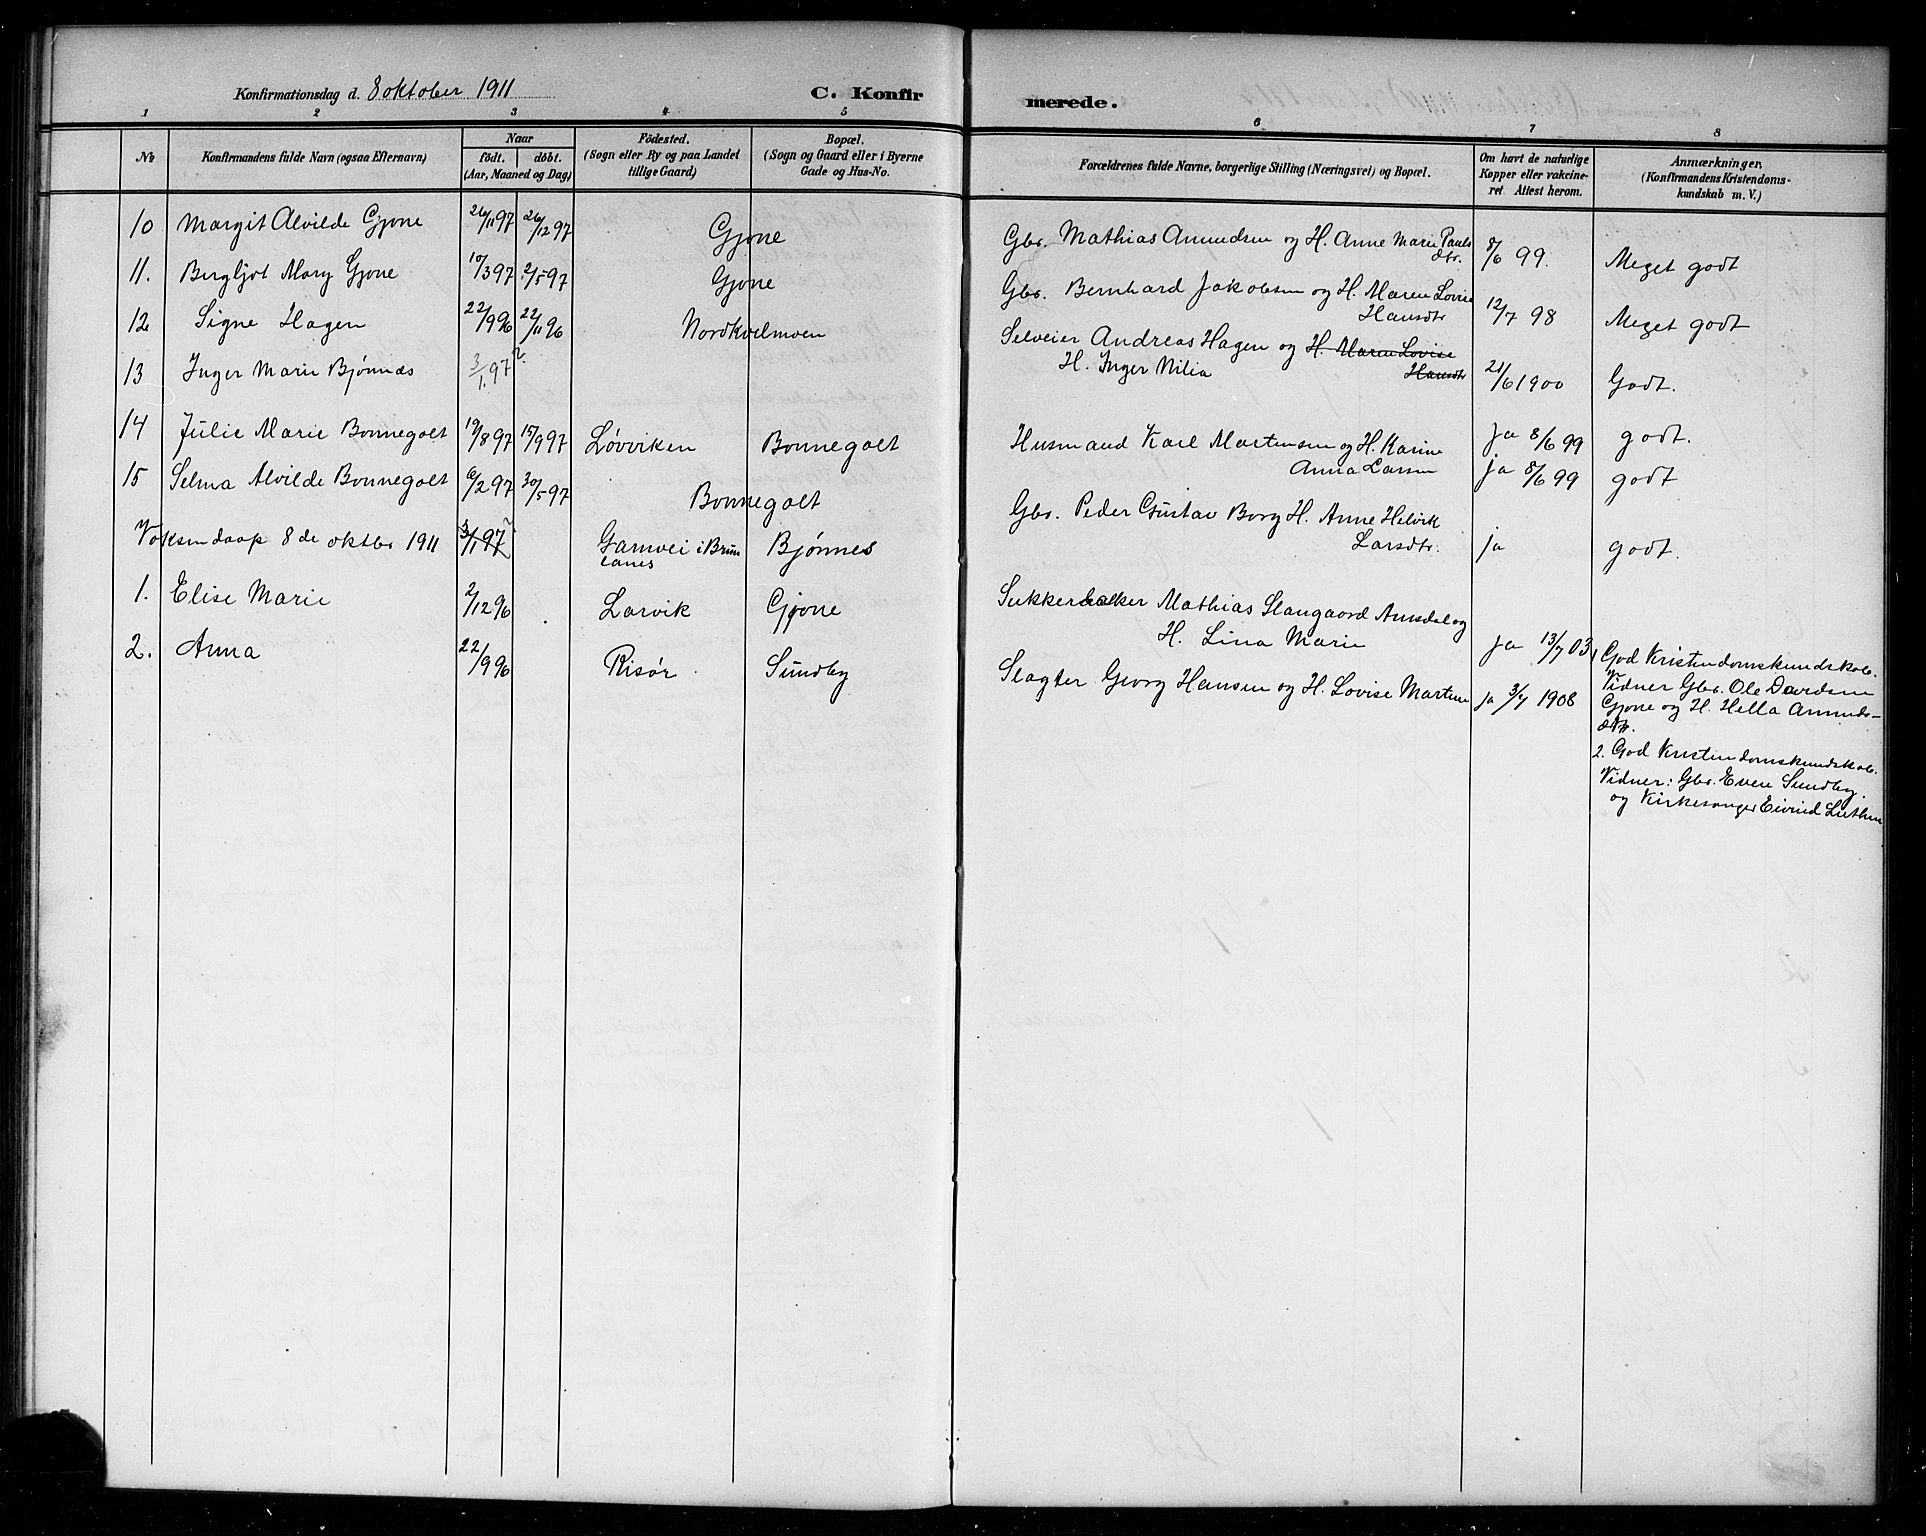 Konfirmationsdag d. 8 oktober 1911
C. Konfirmerede.
1 2 3 4 5 6 7 8
No
Konfirmandens fulde Navn (ogsaa Efternavn)
Naar
födt. döbt.
(Aar, Maaned og Dag)
Födested.
(Sogn eller By og paa Landet
tillige Gaard)
Bopæl.
(Sogn og Gaard eller i Byerne
Gade og Hus-No.
Forældrenes fulde Navne, borgerlige Stilling (Næringsvei) og Bopæl.
Om havt de naturlige
Kopper eller vakcine-
ret. Attest herom.
Anmærkninger.
(Konfirmandens Kristendoms-
kundskab m. V.)
10 Margit Alvilde Gjone 26/11 97 26/12 97 Gjone Gbr. Mathias Amundsen og H. Anne Marie Pauls
dtr. 8/6 99. Meget godt
11. Bergljot Mary Gjone 10/3 97 2/5 97 Gjone Gbr. Bernhard Jakobsen og H. Maren Lovise
Hansdtr 12/7 98 Meget godt
12 Signe Hagen 22/9 96 22/11 96 Nordkvelmoen Selveier Andreas Hagen og H. Maren Lovise
H. Inger Nilia Hansdtr 21/6 1900 Godt.
13 Inger Marie Bjønnes 3/1 97?
14 Julie Marie Bonnegolt 19/8 97 15/9 97 Løvviken Bonnegolt Husmand Karl Martensen og H. Karine
Anna Larsen ja 8/6 99 godt.
15 Selma Alvilde Bonnegolt 6/2 97 30/5 97 Bonnegolt ja 8/6 99 godt
Gbr. Peder Gustav Borg H. Anne Helvik
Larsdtr. ja godt.
Voksendaap 8de oktbr 1911 3/1 97? Gamvei i Brun
lanes Bjønnes
1. Elise Marie 2/12 96 Larvik Gjone Sukkerbakker Mathias Slangaard Amsdal og
H. Lina Marie ja 13/7 03
2. Anna 22/9 96 Risør Sundby Slagter Georg Hansen og H. Lovise Martine ja 3/7 1908
1 God Kristendomskundskab.
Vidner Gbr. Ole Davidsen
Gjone og H. Hella Amunds-
dtr.
2. God Kristendomskundskab.
Vidner: Gbr. Even Sundby
og Kirkesanger Eivind Luthen